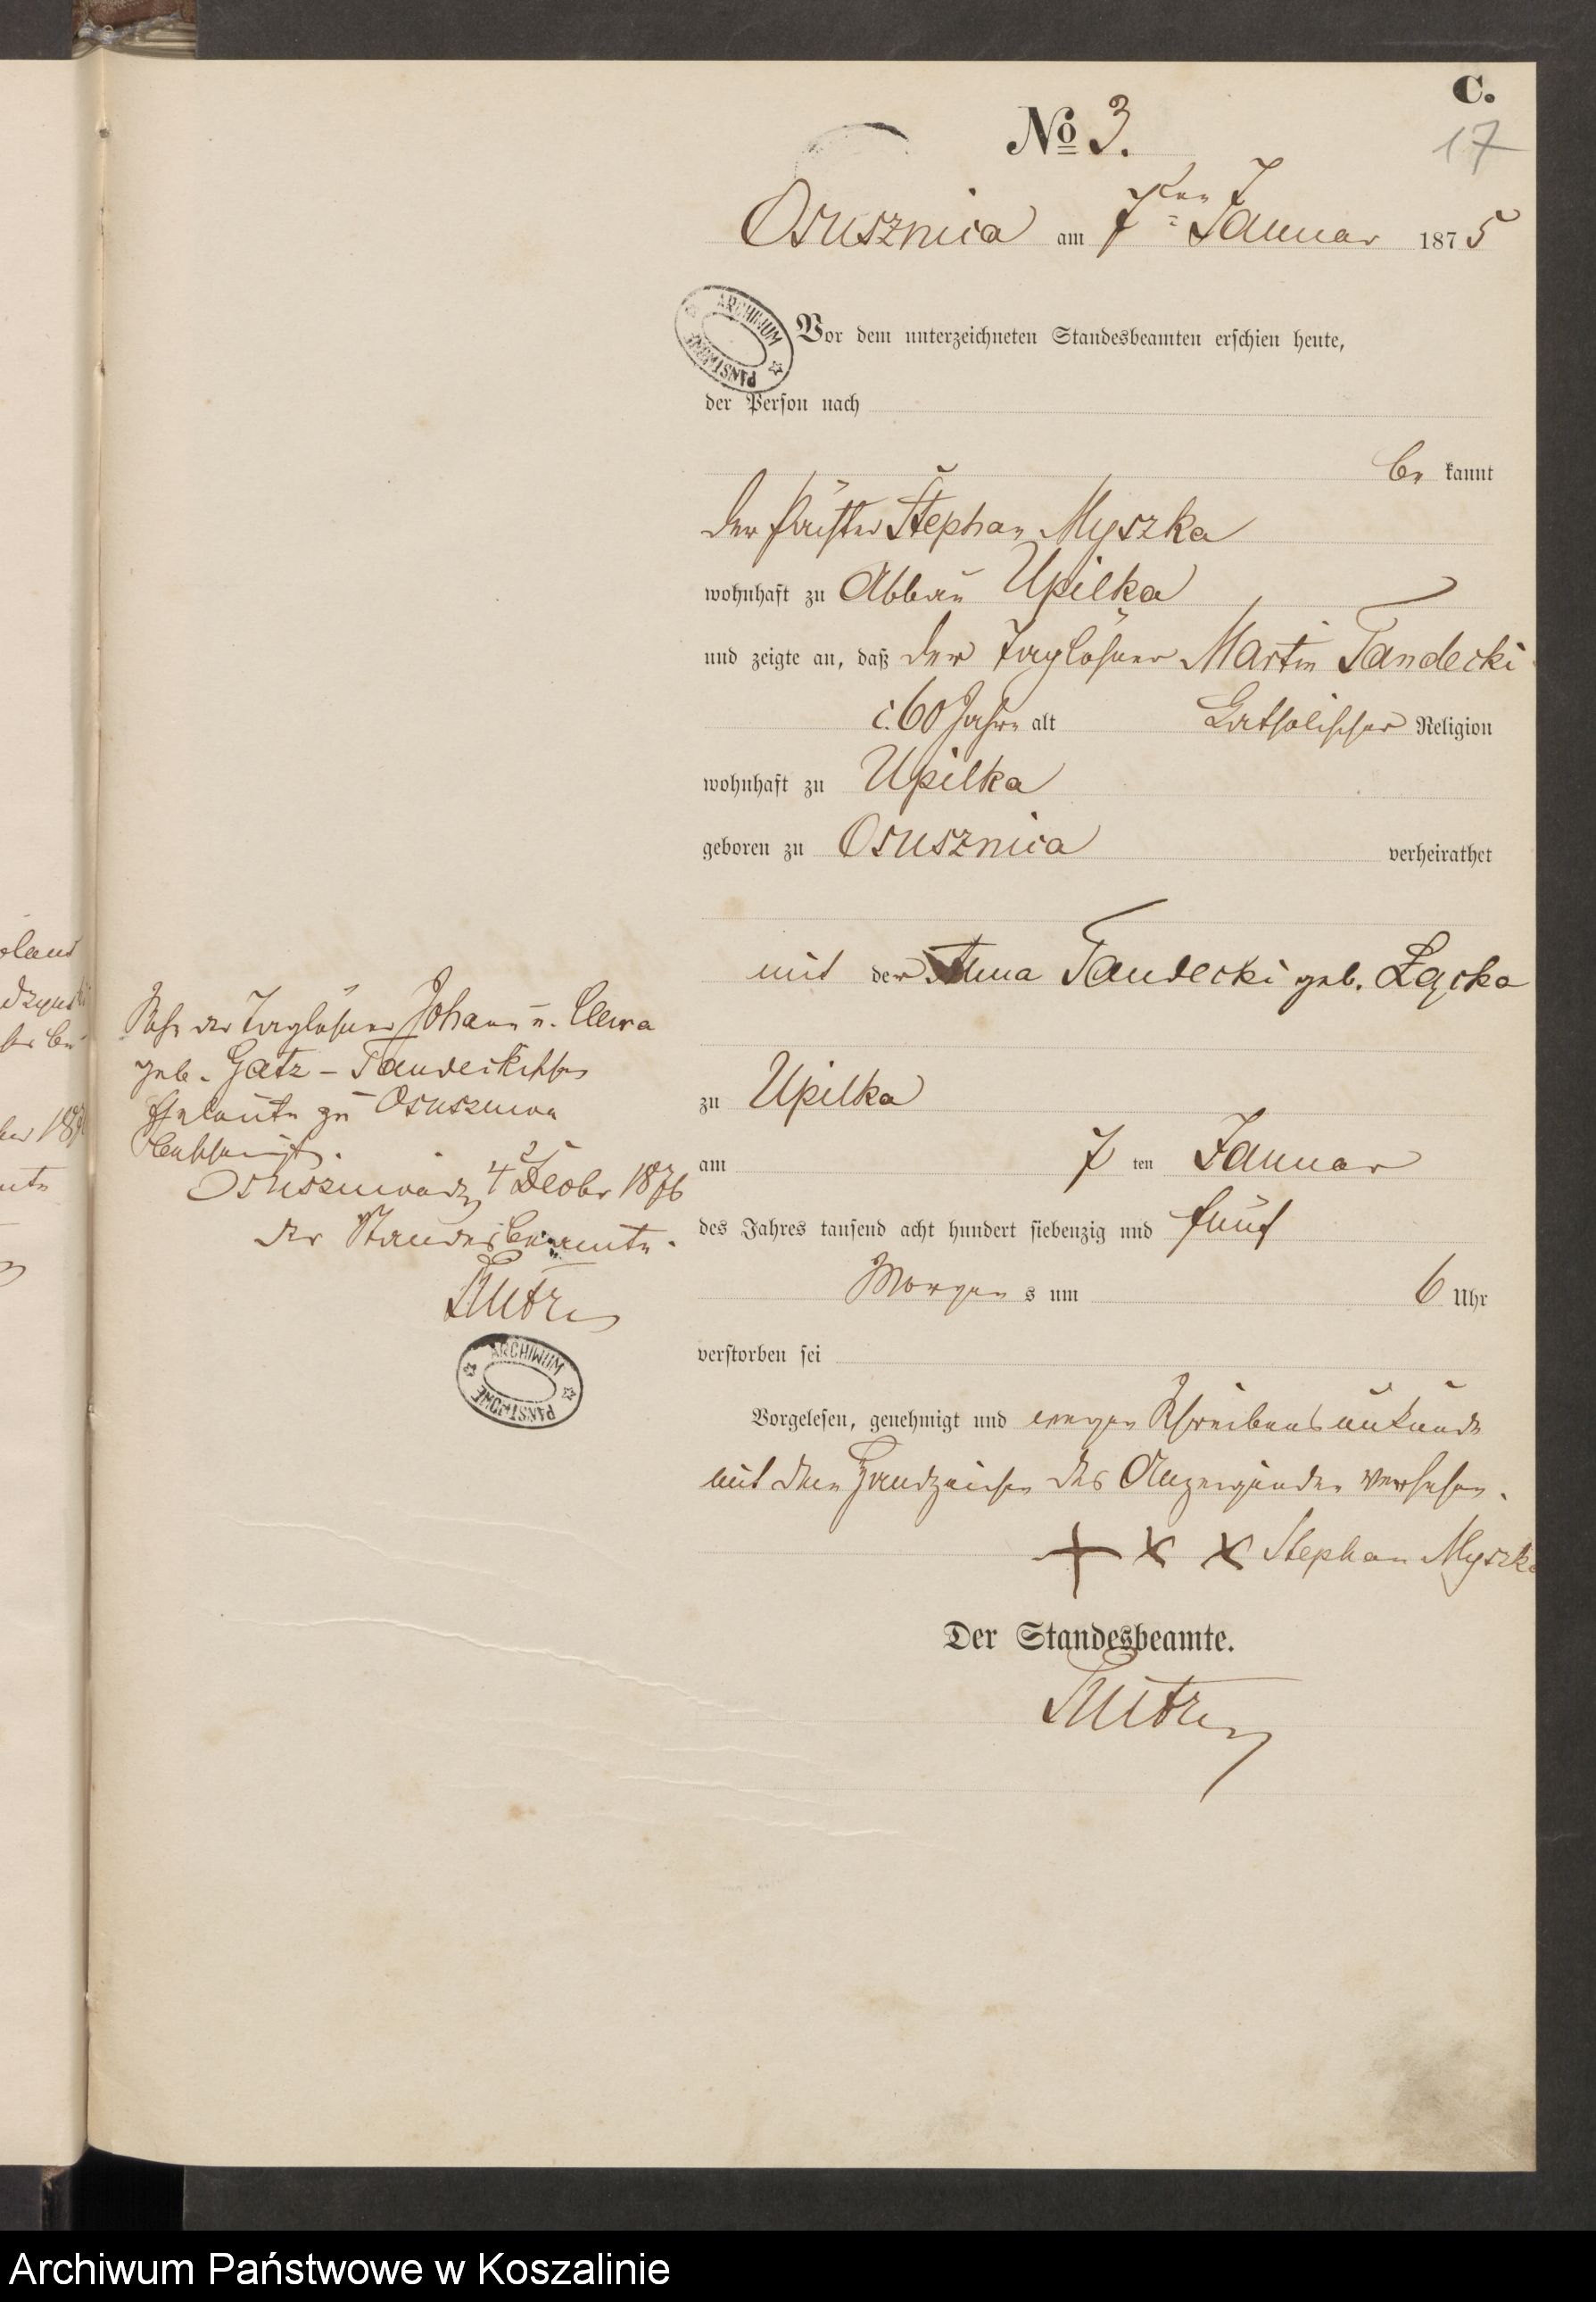 C.
17
No 3.
Osusznica am 7ten Januar 1875
ARCHIWUM PAŃSTWOWE
Vor dem unterzeichneten Standesbeamten erschien heute,
der Person nach
be kannt
der Stephan Myszka
wohnhaft zu Abbau Upilka
und zeigte an, daß der Taglöhner Martin Tandecki
c. 60 Jahre alt Catholischer Religion
wohnhaft zu Upilka
geboren zu Osusznica verheirathet
mit der Anna Tandecki geb. Łącka
zu Upilka
am 7 ten Januar
des Jahres tausend acht hundert siebenzig und fünf
Morgen s um 6 Uhr
verstorben sei
Vorgelesen, genehmigt und wegen Schreibensunkunde
mit dem Handzeichen des Anzeigenden versehen.
+ x x Stephan Myszka
Der Standesbeamte.
Sohn der Taglöhner Johann u.
geb. Gatz – Tandeckischen
Eheleute zu Osusznica
Osusznica d 4 1876
der Standesbeamte.
ARCHIWUM PAŃSTWOWE
Archiwum Państwowe w Koszalinie